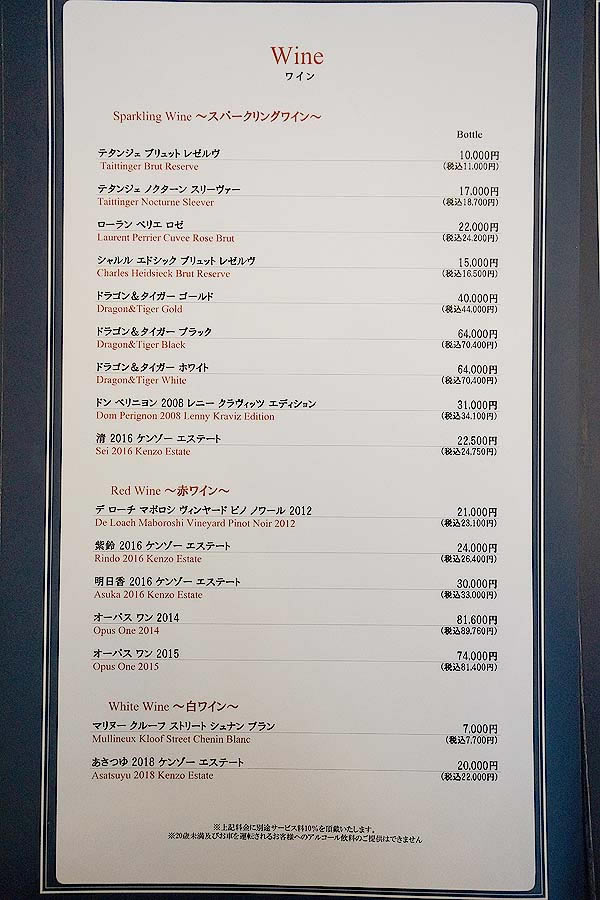 Wine
ワイン
Sparkling Wine 〜スパークリングワイン〜
Bottle
テタンジェ ブリュット レゼルヴ 10,000円
Taittinger Brut Reserve (税込11,000円)
テタンジェ ノクターン スリーヴァー 17,000円
Taittinger Nocturne Sleever (税込18,700円)
ローラン ペリエ ロゼ 22,000円
Laurent Perrier Cuvee Rose Brut (税込24,200円)
シャルル エドシック ブリュット レゼルヴ 15,000円
Charles Heidsieck Brut Reserve (税込16,500円)
ドラゴン&タイガー ゴールド 40,000円
Dragon&Tiger Gold (税込44,000円)
ドラゴン&タイガー ブラック 64,000円
Dragon&Tiger Black (税込70,400円)
ドラゴン&タイガー ホワイト 64,000円
Dragon&Tiger White (税込70,400円)
ドン ペリニヨン 2008 レニー クラヴィッツ エディション 31,000円
Dom Perignon 2008 Lenny Kraviz Edition (税込34,100円)
清 2016 ケンゾー エステート 22,500円
Sei 2016 Kenzo Estate (税込24,750円)
Red Wine 〜赤ワイン〜
デ ローチ マボロシ ヴィンヤード ピノ ノワール 2012 21,000円
De Loach Maboroshi Vineyard Pinot Noir 2012 (税込23,100円)
紫鈴 2016 ケンゾー エステート 24,000円
Rindo 2016 Kenzo Estate (税込26,400円)
明日香 2016 ケンゾー エステート 30,000円
Asuka 2016 Kenzo Estate (税込33,000円)
オーパス ワン 2014 81,600円
Opus One 2014 (税込89,760円)
オーパス ワン 2015 74,000円
Opus One 2015 (税込81,400円)
White Wine 〜白ワイン〜
マリヌー クルーフ ストリート シュナン ブラン 7,000円
Mullineux Kloof Street Chenin Blanc (税込7,700円)
あさつゆ 2018 ケンゾー エステート 20,000円
Asatsuyu 2018 Kenzo Estate (税込22,000円)
※上記料金に別途サービス料10%を頂戴いたします。
※20歳未満及びお車を運転されるお客様へのアルコール飲料のご提供はできません